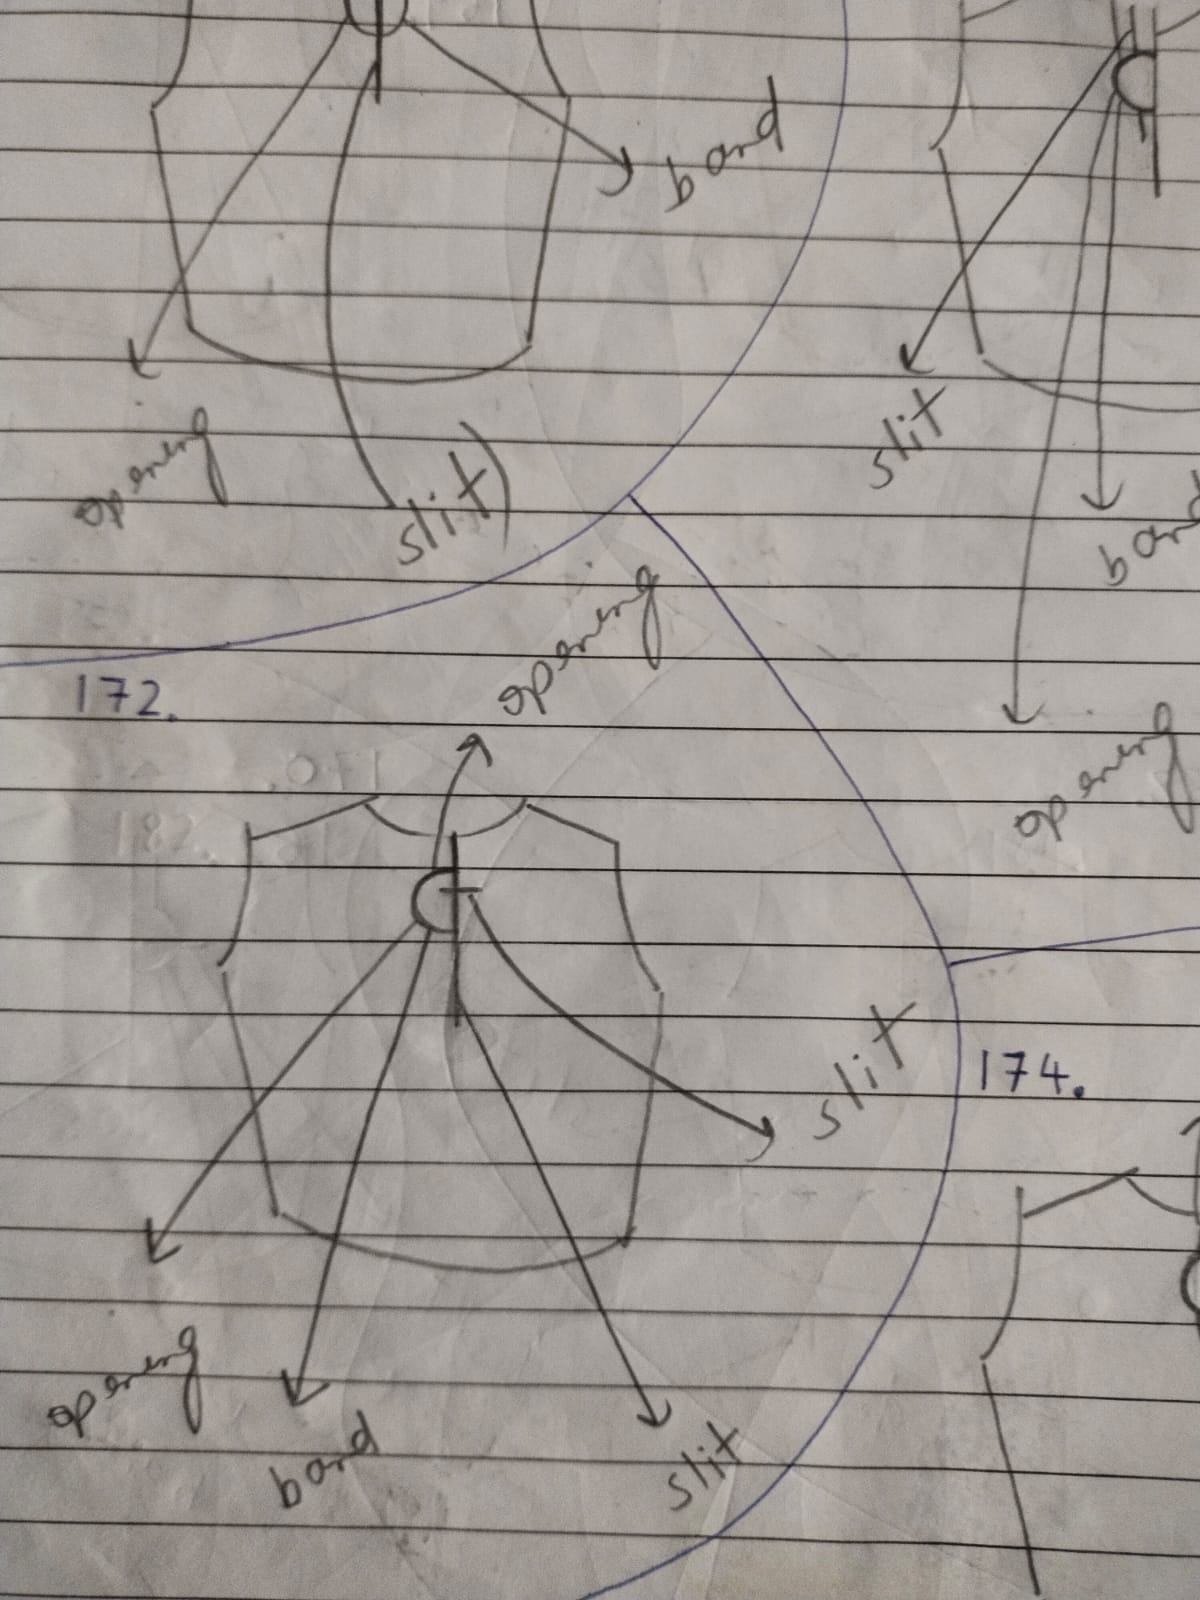 band
opening
slit)
slit
band
opening
172.
opening
slit
opening
band
slit
174.